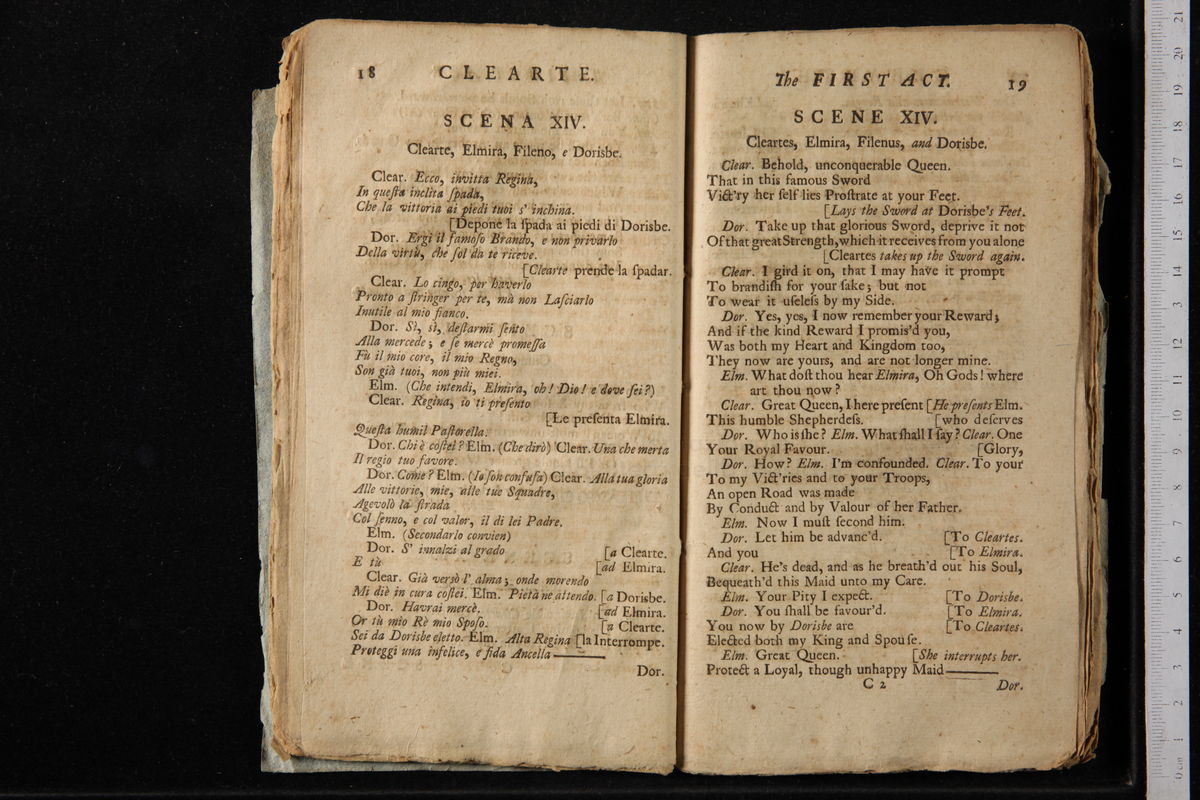 18 CLEARTE.
SCENA XIV.
Clearte, Elmira, Fileno, e Dorisbe.
Clear. Ecco, invitta Regina,
In queſta inclita ſpada,
Che la vittoria ai piedi tuoi s' inchina.
[Depone la ſpada ai piedi di Dorisbe.
Dor. Ergi il famoſo Brando, e non privarlo
Della virtù, che ſol da te riceve.
[Clearte prende la ſpadar.
Clear. Lo cingo, per haverlo
Pronto a ſtringer per te, mà non Laſciarlo
Inutile al mio fianco.
Dor. Sì, sì, deſtarmi ſento
Alla mercede; e ſe mercè promeſſa
Fù il mio core, il mio Regno,
Son già tuoi, non più miei.
Elm. (Che intendi, Elmira, oh! Dio! e dove ſei?)
Clear. Regina, io ti preſento
[Le preſenta Elmira.
Queſta humil Paſtorella.
Dor. Chi è coſtei? Elm. (Che dirò) Clear. Una che merta
Il regio tuo favore.
Dor. Come? Elm. (Io ſon confuſa) Clear. Alla tua gloria
Alle vittorie, mie, alle tue Squadre,
Agevolò la ſtrada
Col ſenno, e col valor, il di lei Padre.
Elm. (Secondarlo convien)
Dor. S' innalzi al grado [a Clearte.
E tù [ad Elmira.
Clear. Già versò l' alma; onde morendo
Mi diè in cura coſtei. Elm. Pietà ne attendo. [a Dorisbe.
Dor. Havrai mercè. [ad Elmira.
Or tù mio Rè mio Spoſo. [a Clearte.
Sei da Dorisbe eletto. Elm. Alta Regina [la Interrompe.
Proteggi una infelice, e fida Ancella ———
Dor.
The FIRST ACT. 19
SCENE XIV.
Cleartes, Elmira, Filenus, and Dorisbe.
Clear. Behold, unconquerable Queen.
That in this famous Sword
Vict'ry her ſelf lies Proſtrate at your Feet.
[Lays the Sword at Dorisbe's Feet.
Dor. Take up that glorious Sword, deprive it not
Of that great Strength, which it receives from you alone
[Cleartes takes up the Sword again.
Clear. I gird it on, that I may have it prompt
To brandiſh for your ſake; but not
To wear it uſeleſs by my Side.
Dor. Yes, yes, I now remember your Reward;
And if the kind Reward I promis'd you,
Was both my Heart and Kingdom too,
They now are yours, and are not longer mine.
Elm. What doſt thou hear Elmira, Oh Gods! where
art thou now?
Clear. Great Queen, I here preſent [He preſents Elm.
This humble Shepherdeſs. [who deſerves
Dor. Who is ſhe? Elm. What ſhall I ſay? Clear. One
Your Royal Favour. [Glory,
Dor. How? Elm. I'm confounded. Clear. To your
To my Vict'ries and to your Troops,
An open Road was made
By Conduct and by Valour of her Father.
Elm. Now I muſt ſecond him.
Dor. Let him be advanc'd. [To Cleartes.
And you [To Elmira.
Clear. He's dead, and as he breath'd out his Soul,
Bequeath'd this Maid unto my Care.
Elm. Your Pity I expect. [To Dorisbe.
Dor. You ſhall be favour'd. [To Elmira.
You now by Dorisbe are [To Cleartes.
Elected both my King and Spouſe.
Elm. Great Queen. [She interrupts her.
Protect a Loyal, though unhappy Maid———
C 2 Dor.
0 cm 1 2 3 4 5 6 7 8 9 10 11 12 13 14 15 16 17 18 19 20 21